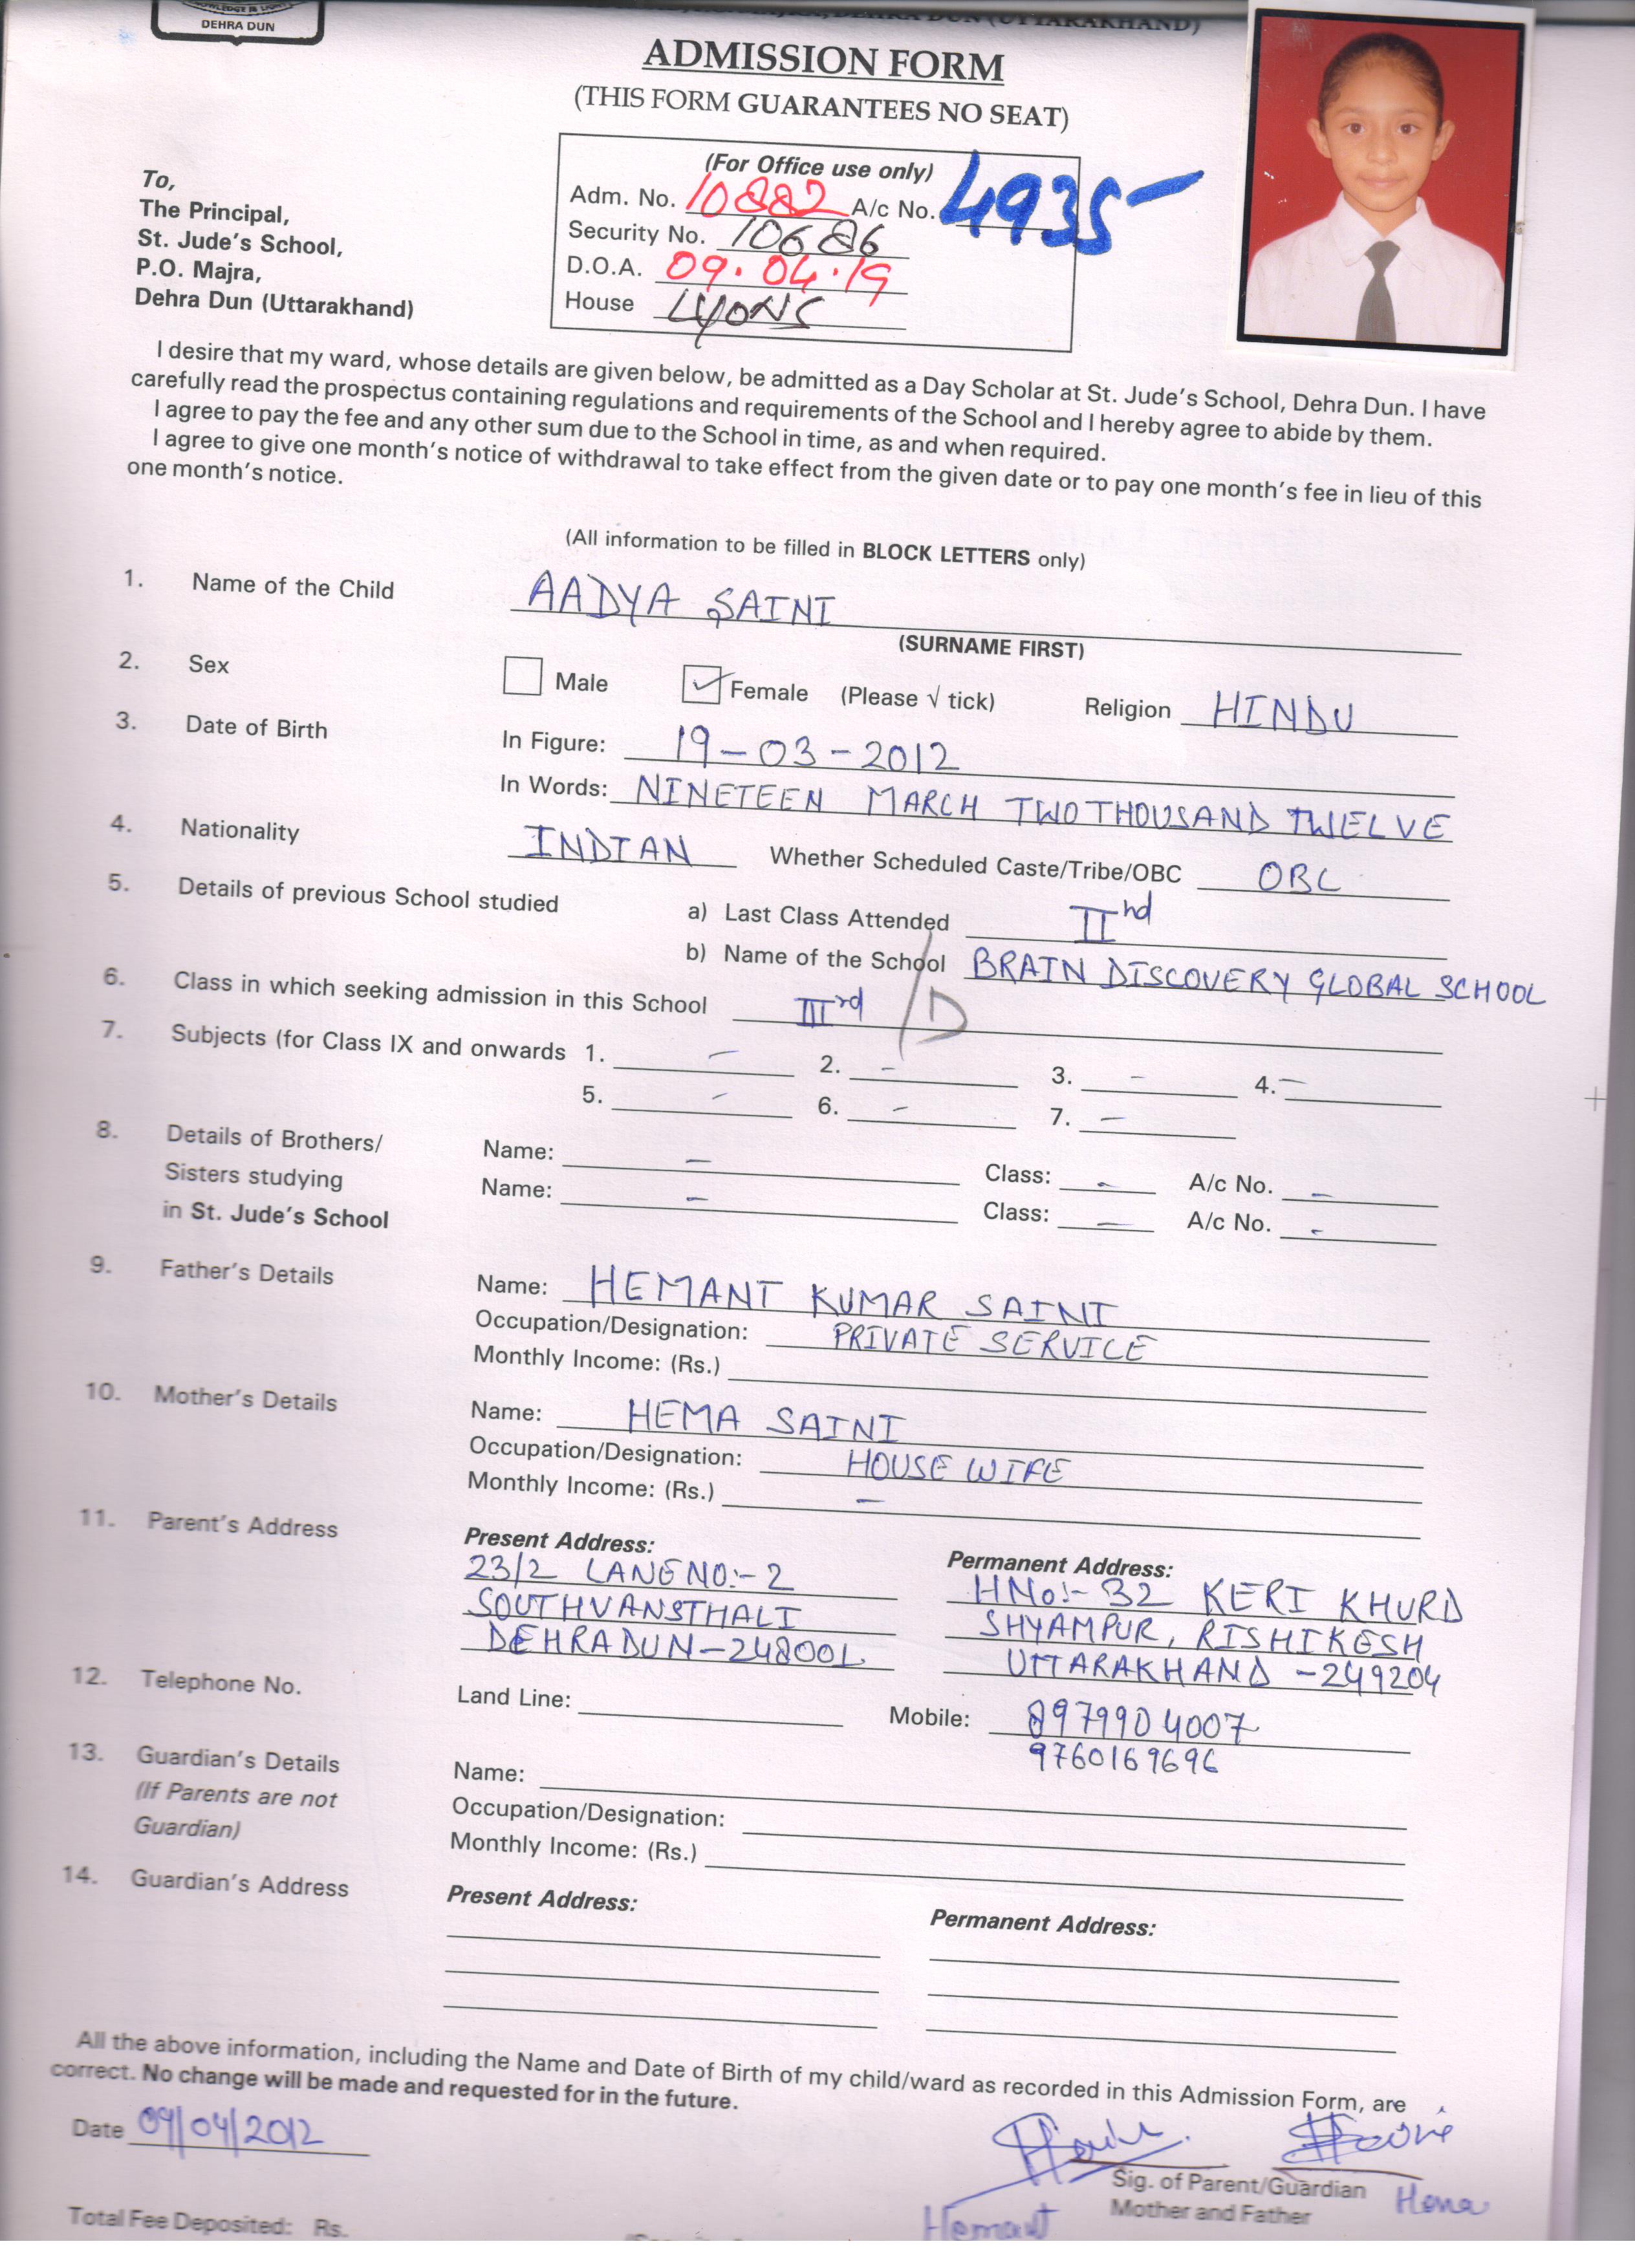 DEHRA DUN
DEHRA DUN (UTTARAKHAND)
ADMISSION FORM
(THIS FORM GUARANTEES NO SEAT)
(For Office use only)
Adm. No. 10882 A/c No. 4935
Security No. 10686
D.O.A. 09.04.19
House LYONS
To,
The Principal,
St. Jude's School,
P.O. Majra,
Dehra Dun (Uttarakhand)
I desire that my ward, whose details are given below, be admitted as a Day Scholar at St. Jude's School, Dehra Dun. I have
carefully read the prospectus containing regulations and requirements of the School and I hereby agree to abide by them.
I agree to pay the fee and any other sum due to the School in time, as and when required.
I agree to give one month's notice of withdrawal to take effect from the given date or to pay one month's fee in lieu of this
one month's notice.
(All information to be filled in BLOCK LETTERS only)
1. Name of the Child AADYA SAINI
(SURNAME FIRST)
2. Sex Male Female (Please √ tick) Religion HINDU
3. Date of Birth In Figure: 19-03-2012
In Words: NINETEEN MARCH TWO THOUSAND TWELVE
4. Nationality INDIAN Whether Scheduled Caste/Tribe/OBC OBC
5. Details of previous School studied a) Last Class Attended IInd
b) Name of the School BRAIN DISCOVERY GLOBAL SCHOOL
6. Class in which seeking admission in this School IIIrd /D
7. Subjects (for Class IX and onwards 1. - 2. - 3. - 4. -
5. - 6. - 7. -
8. Details of Brothers/ Name: - Class: - A/c No. -
Sisters studying Name: - Class: - A/c No. -
in St. Jude's School
9. Father's Details Name: HEMANT KUMAR SAINI
Occupation/Designation: PRIVATE SERVICE
Monthly Income: (Rs.)
10. Mother's Details Name: HEMA SAINI
Occupation/Designation: HOUSE WIFE
Monthly Income: (Rs.) -
11. Parent's Address Present Address: Permanent Address:
23/2 LANE NO:- 2 HNo:- 32 KERI KHURD
SOUTHVANSTHALI SHYAMPUR, RISHIKESH
DEHRADUN-248001 UTTARAKHAND -249204
12. Telephone No. Land Line: Mobile: 8979904007
9760169696
13. Guardian's Details Name:
(If Parents are not Occupation/Designation:
Guardian) Monthly Income: (Rs.)
14. Guardian's Address Present Address: Permanent Address:
All the above information, including the Name and Date of Birth of my child/ward as recorded in this Admission Form, are
correct. No change will be made and requested for in the future.
Date 09/04/2012
Sig. of Parent/Guardian Hema
Mother and Father
Hemant
Total Fee Deposited: Rs.